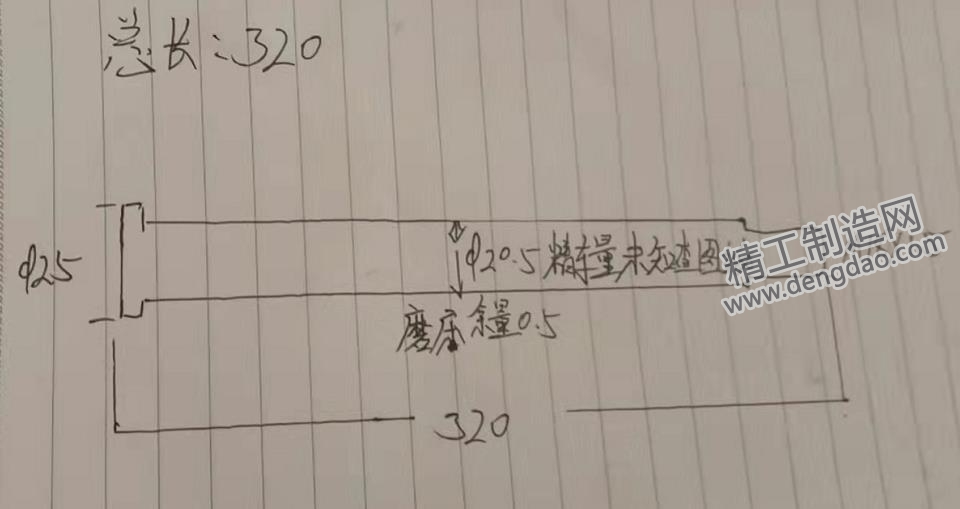 总长:320
φ25
φ20.5 精车量未知查图
磨床余量0.5
320
精工制造网
www.dengdao.com